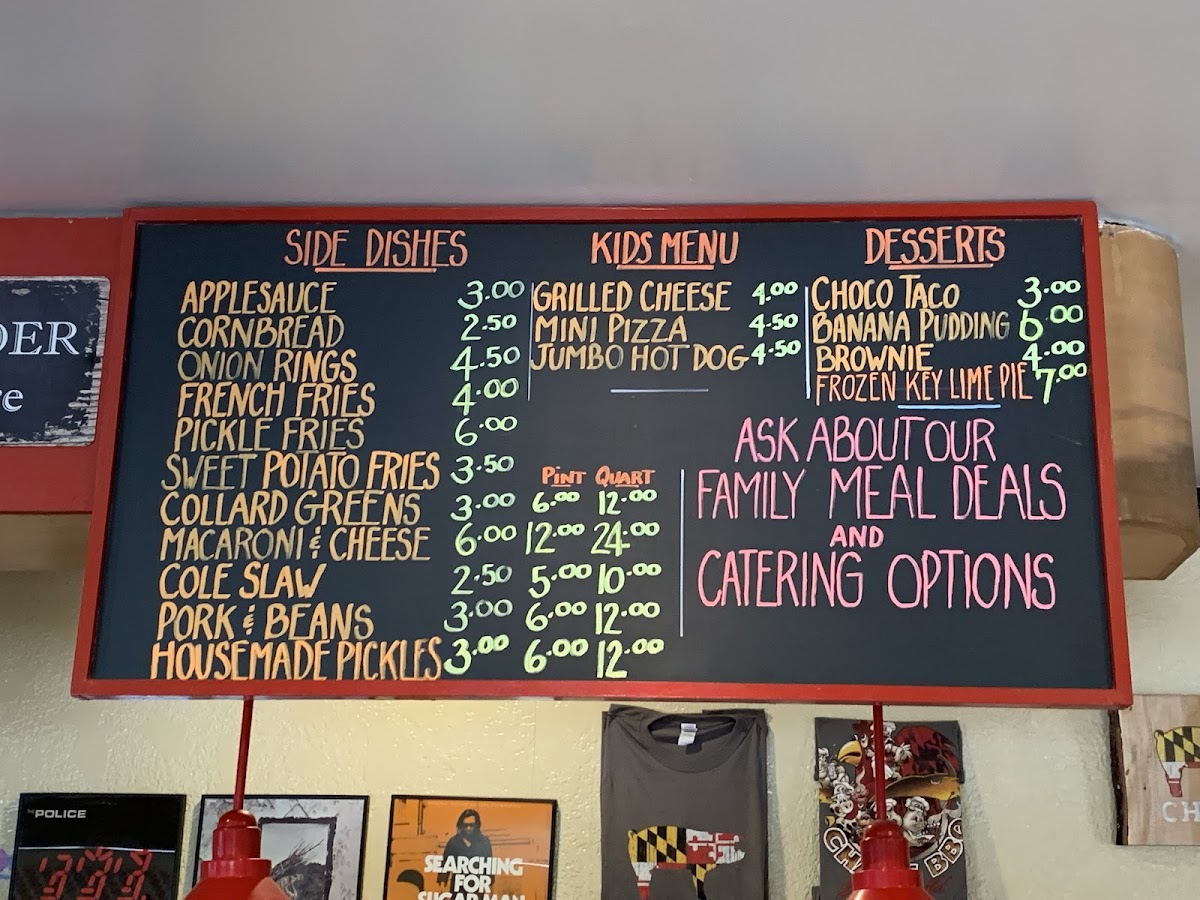 SIDE DISHES
APPLESAUCE 3.00
CORNBREAD 2.50
ONION RINGS 4.50
FRENCH FRIES 4.00
PICKLE FRIES 6.00
SWEET POTATO FRIES 3.50
PINT QUART
COLLARD GREENS 3.00 6.00 12.00
MACARONI & CHEESE 6.00 12.00 24.00
COLE SLAW 2.50 5.00 10.00
PORK & BEANS 3.00 6.00 12.00
HOUSEMADE PICKLES 3.00 6.00 12.00
KIDS MENU
GRILLED CHEESE 4.00
MINI PIZZA 4.50
JUMBO HOT DOG 4.50
DESSERTS
CHOCO TACO 3.00
BANANA PUDDING 6.00
BROWNIE 4.00
FROZEN KEY LIME PIE 7.00
ASK ABOUT OUR
FAMILY MEAL DEALS
AND
CATERING OPTIONS
THE POLICE
SEARCHING
FOR
SUGAR MAN